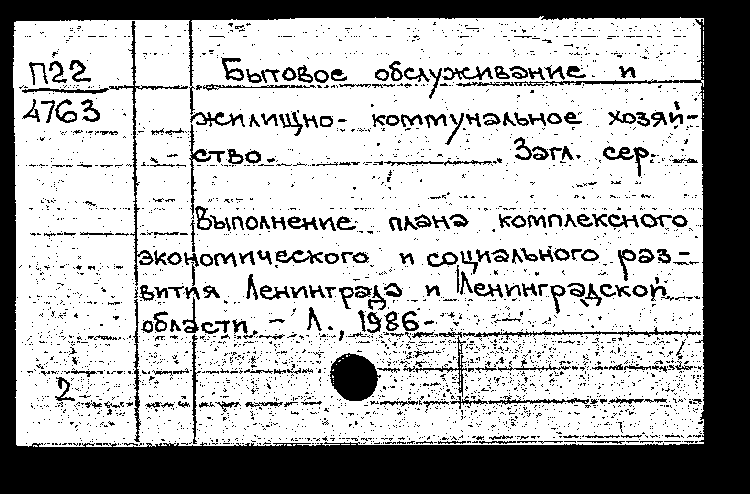 П22
4763
Бытовое обслуживание и
жилищно-коммунальное хозяй-
ство. Загл. сер.
Выполнение плана комплексного
экономического и социального раз-
вития Ленинграда и Ленинградской
области. - Л., 1986-
2